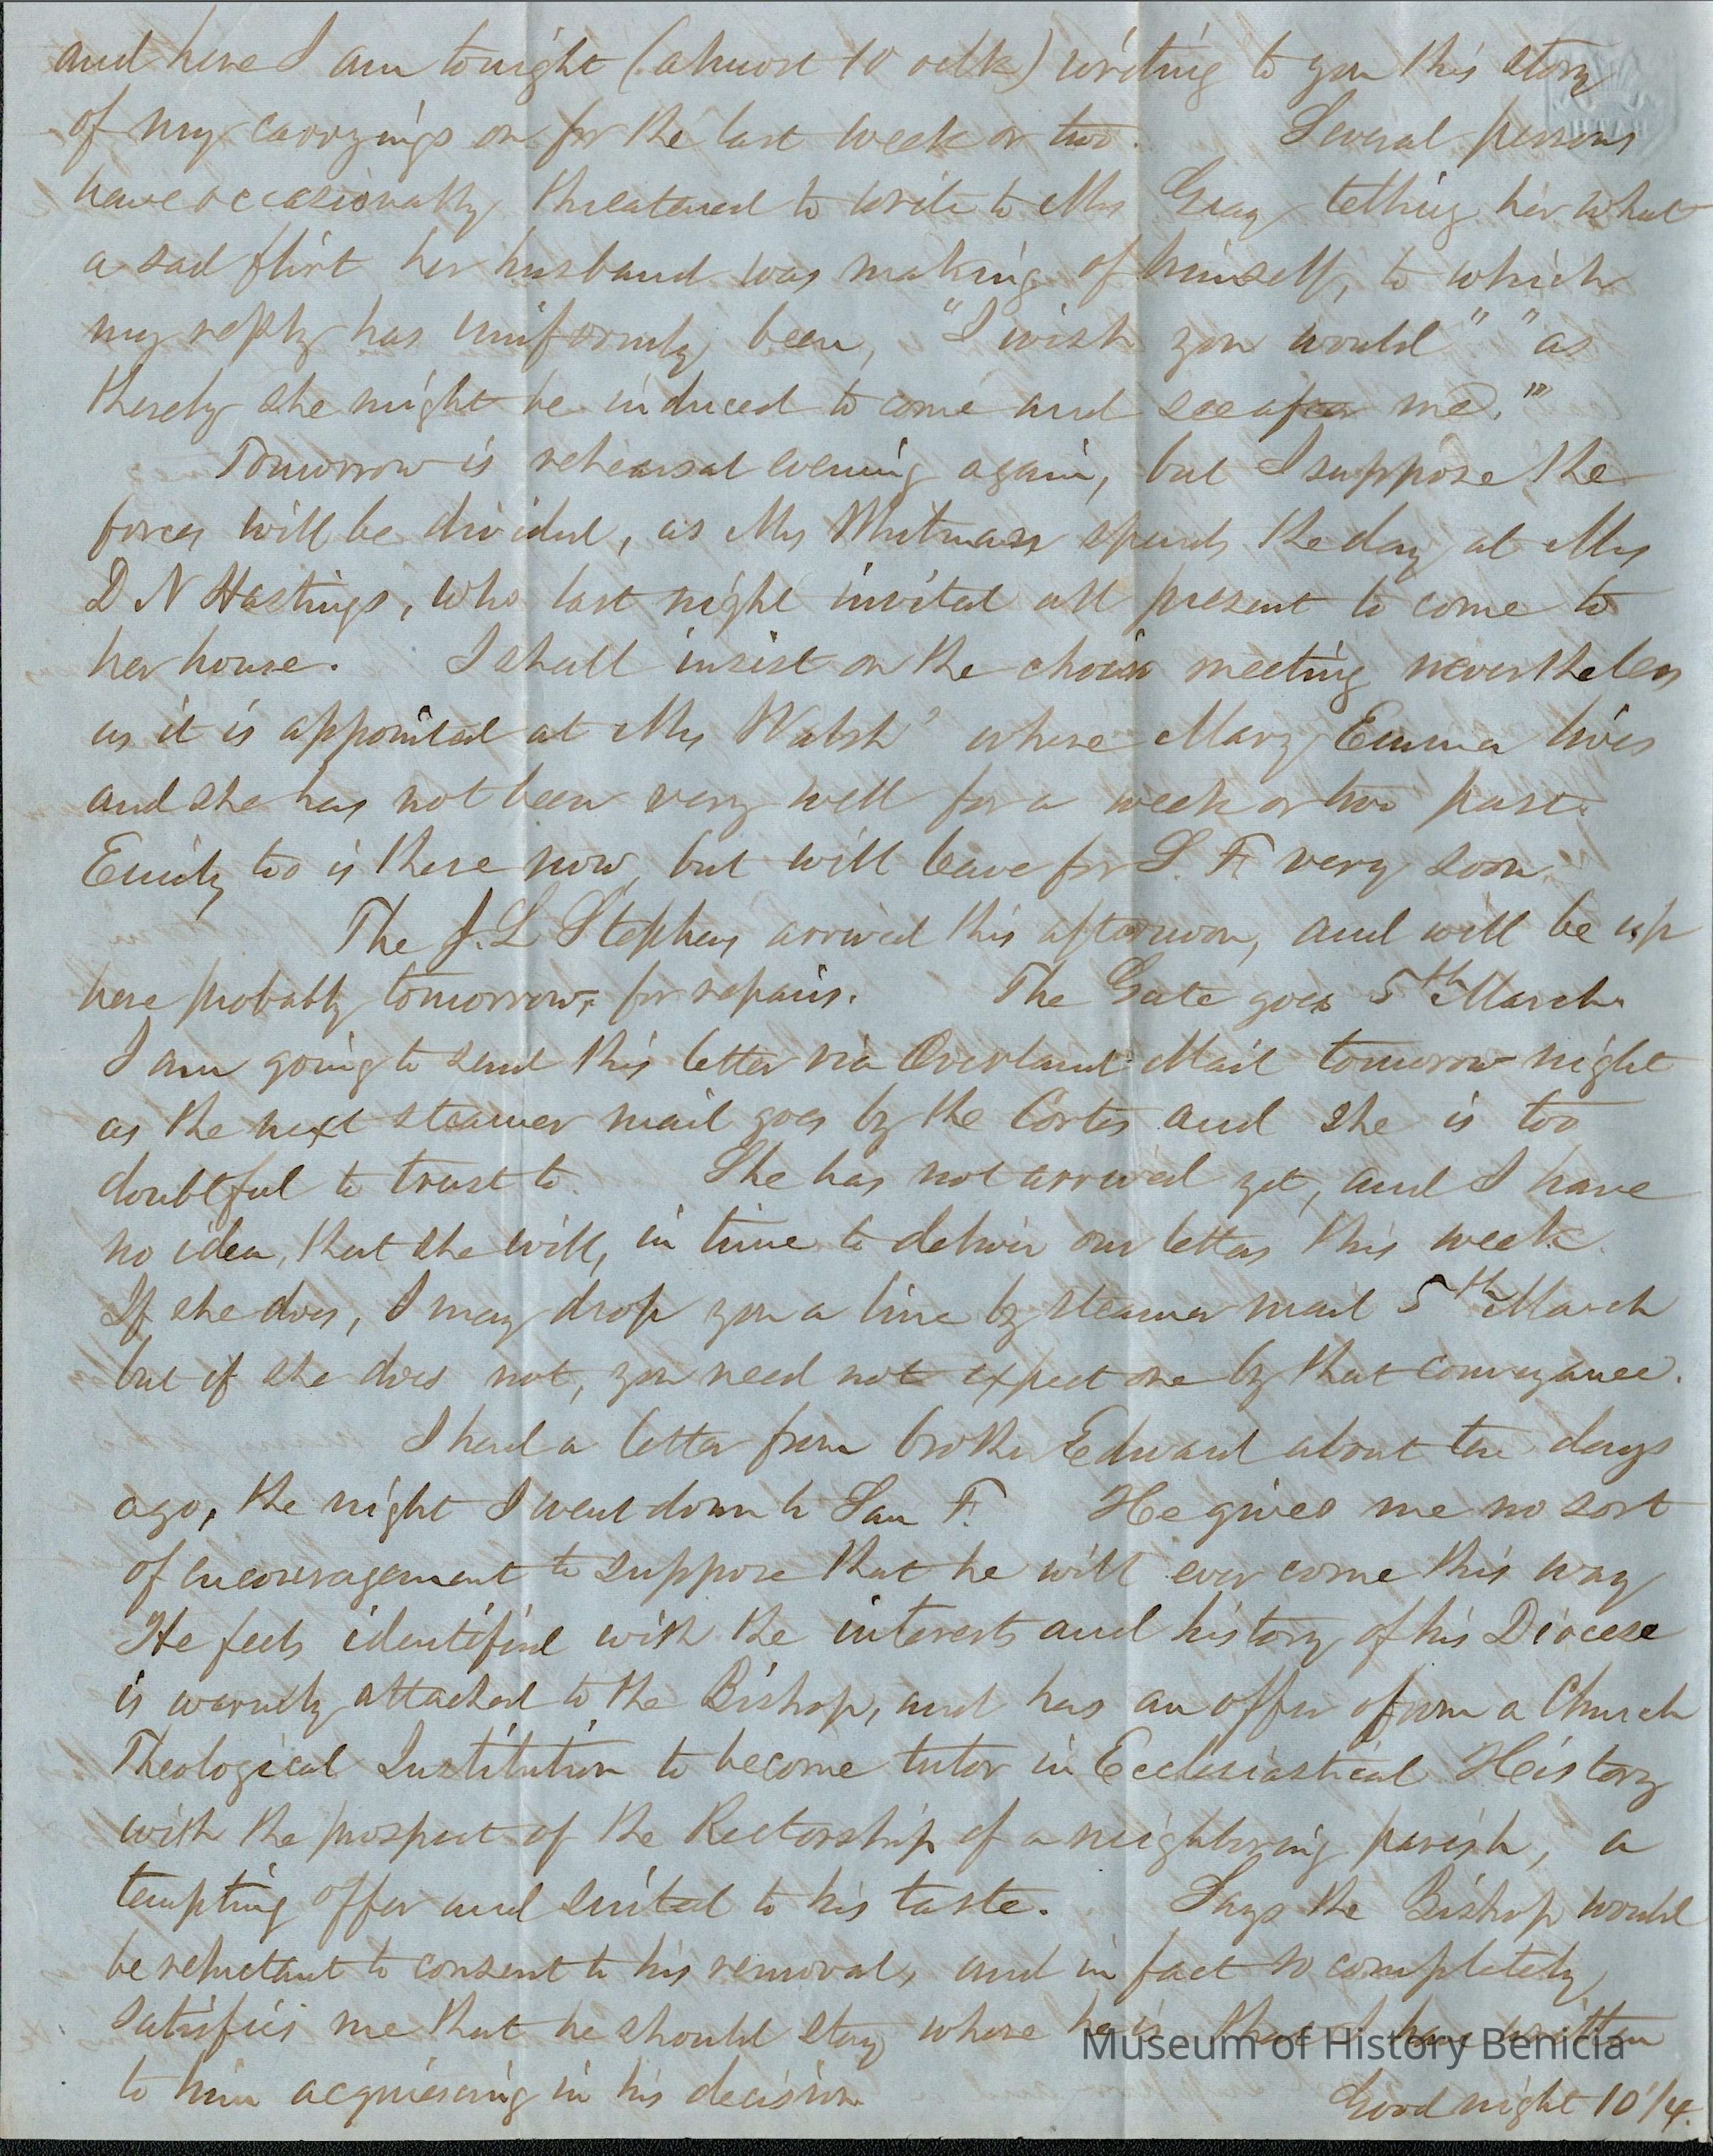 and here I am tonight (almost 10 oclk) writing to you this story
of my carryings on for the last week or two. Several persons
have occasionally threatened to write to Mrs Gray telling her what
a sad flirt her husband was making of himself, to which
my reply has uniformly been, "I wish you would" "as
thereby she might be induced to come and see after me."
Tomorrow is rehearsal evening again, but I suppose the
forces will be divided, as Mrs Whitman spends the day at Mrs
D N Hastings, who last night invited all present to come to
her house. I shall insist on the choir meeting nevertheless
as it is appointed at Mrs Walsh' where Mary Emma lives
and she has not been very well for a week or two past.
Emily too is there now, but will leave for S. F. very soon.
The J. L Stephens arrived this afternoon, and will be up
here probably tomorrow, for repairs. The Gate goes 5th March.
I am going to send this letter via Overland Mail tomorrow night
as the next steamer mail goes by the Cortes and she is too
doubtful to trust to. She has not arrived yet, and I have
no idea, that she will, in time to deliver our letters this week.
If she does, I may drop you a line by steamer mail 5th March
but if she does not, you need not expect one by that conveyance.
I had a letter from brother Edward about ten days
ago, the night I went down to San F. He gives me no sort
of encouragement to suppose that he will ever come this way
He feels identified with the interests and history of his Diocese
is warmly attached to the Bishop, and has an offer from a Church
Theological Institution to become tutor in Ecclesiastical History
with the prospect of the Rectorship of a neighboring parish, a
tempting offer and suited to his taste. Says the Bishop would
be reluctant to consent to his removal, and in fact so completely
satisfies me that he should stay where he is that I have written
to him acquiescing in his decision.
Good night 10 1/4.
Museum of History Benicia